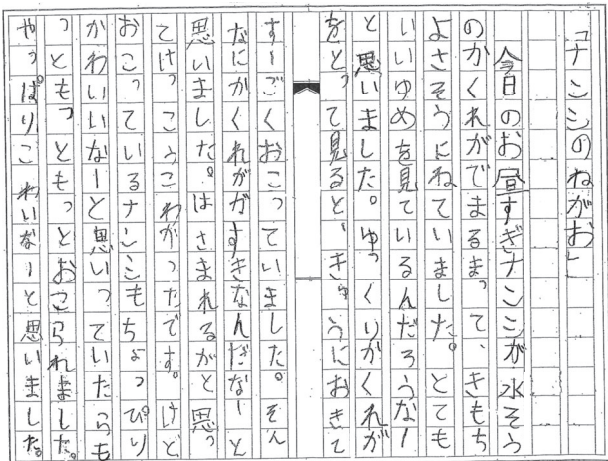 「ナンシのねがお」
今日のお昼すぎナンシが水そう
のかくれがでまるまって、きもち
よさそうにねていました。とても
いいゆめを見ているんだろうなー
と思いました。ゆっくりかくれが
をとって見ると、きゅうにおきて
すーごくおこっていました。そん
なにかくれががすきなんだなーと
思いました。はさまれるがと思っ
てけっこうこわがったです。けど
おこっているナンシもちょっぴり
かわいいなーと思いっていたらも
っともっともっとおこられました。
やっぱりこわいなーと思いました。